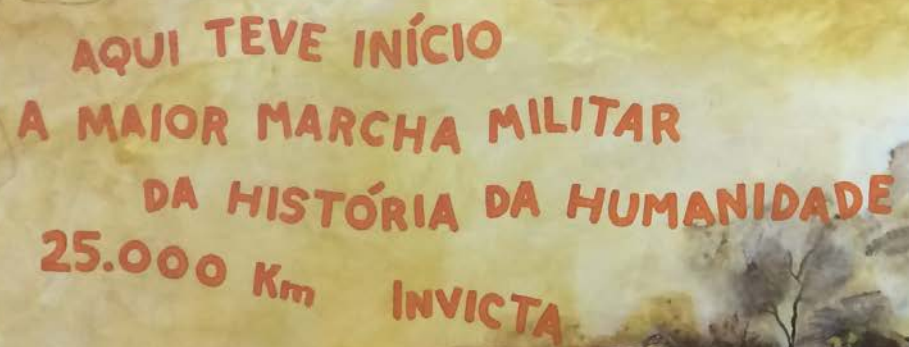 AQUI TEVE INÍCIO
A MAIOR MARCHA MILITAR
DA HISTÓRIA DA HUMANIDADE
25.000 Km INVICTA